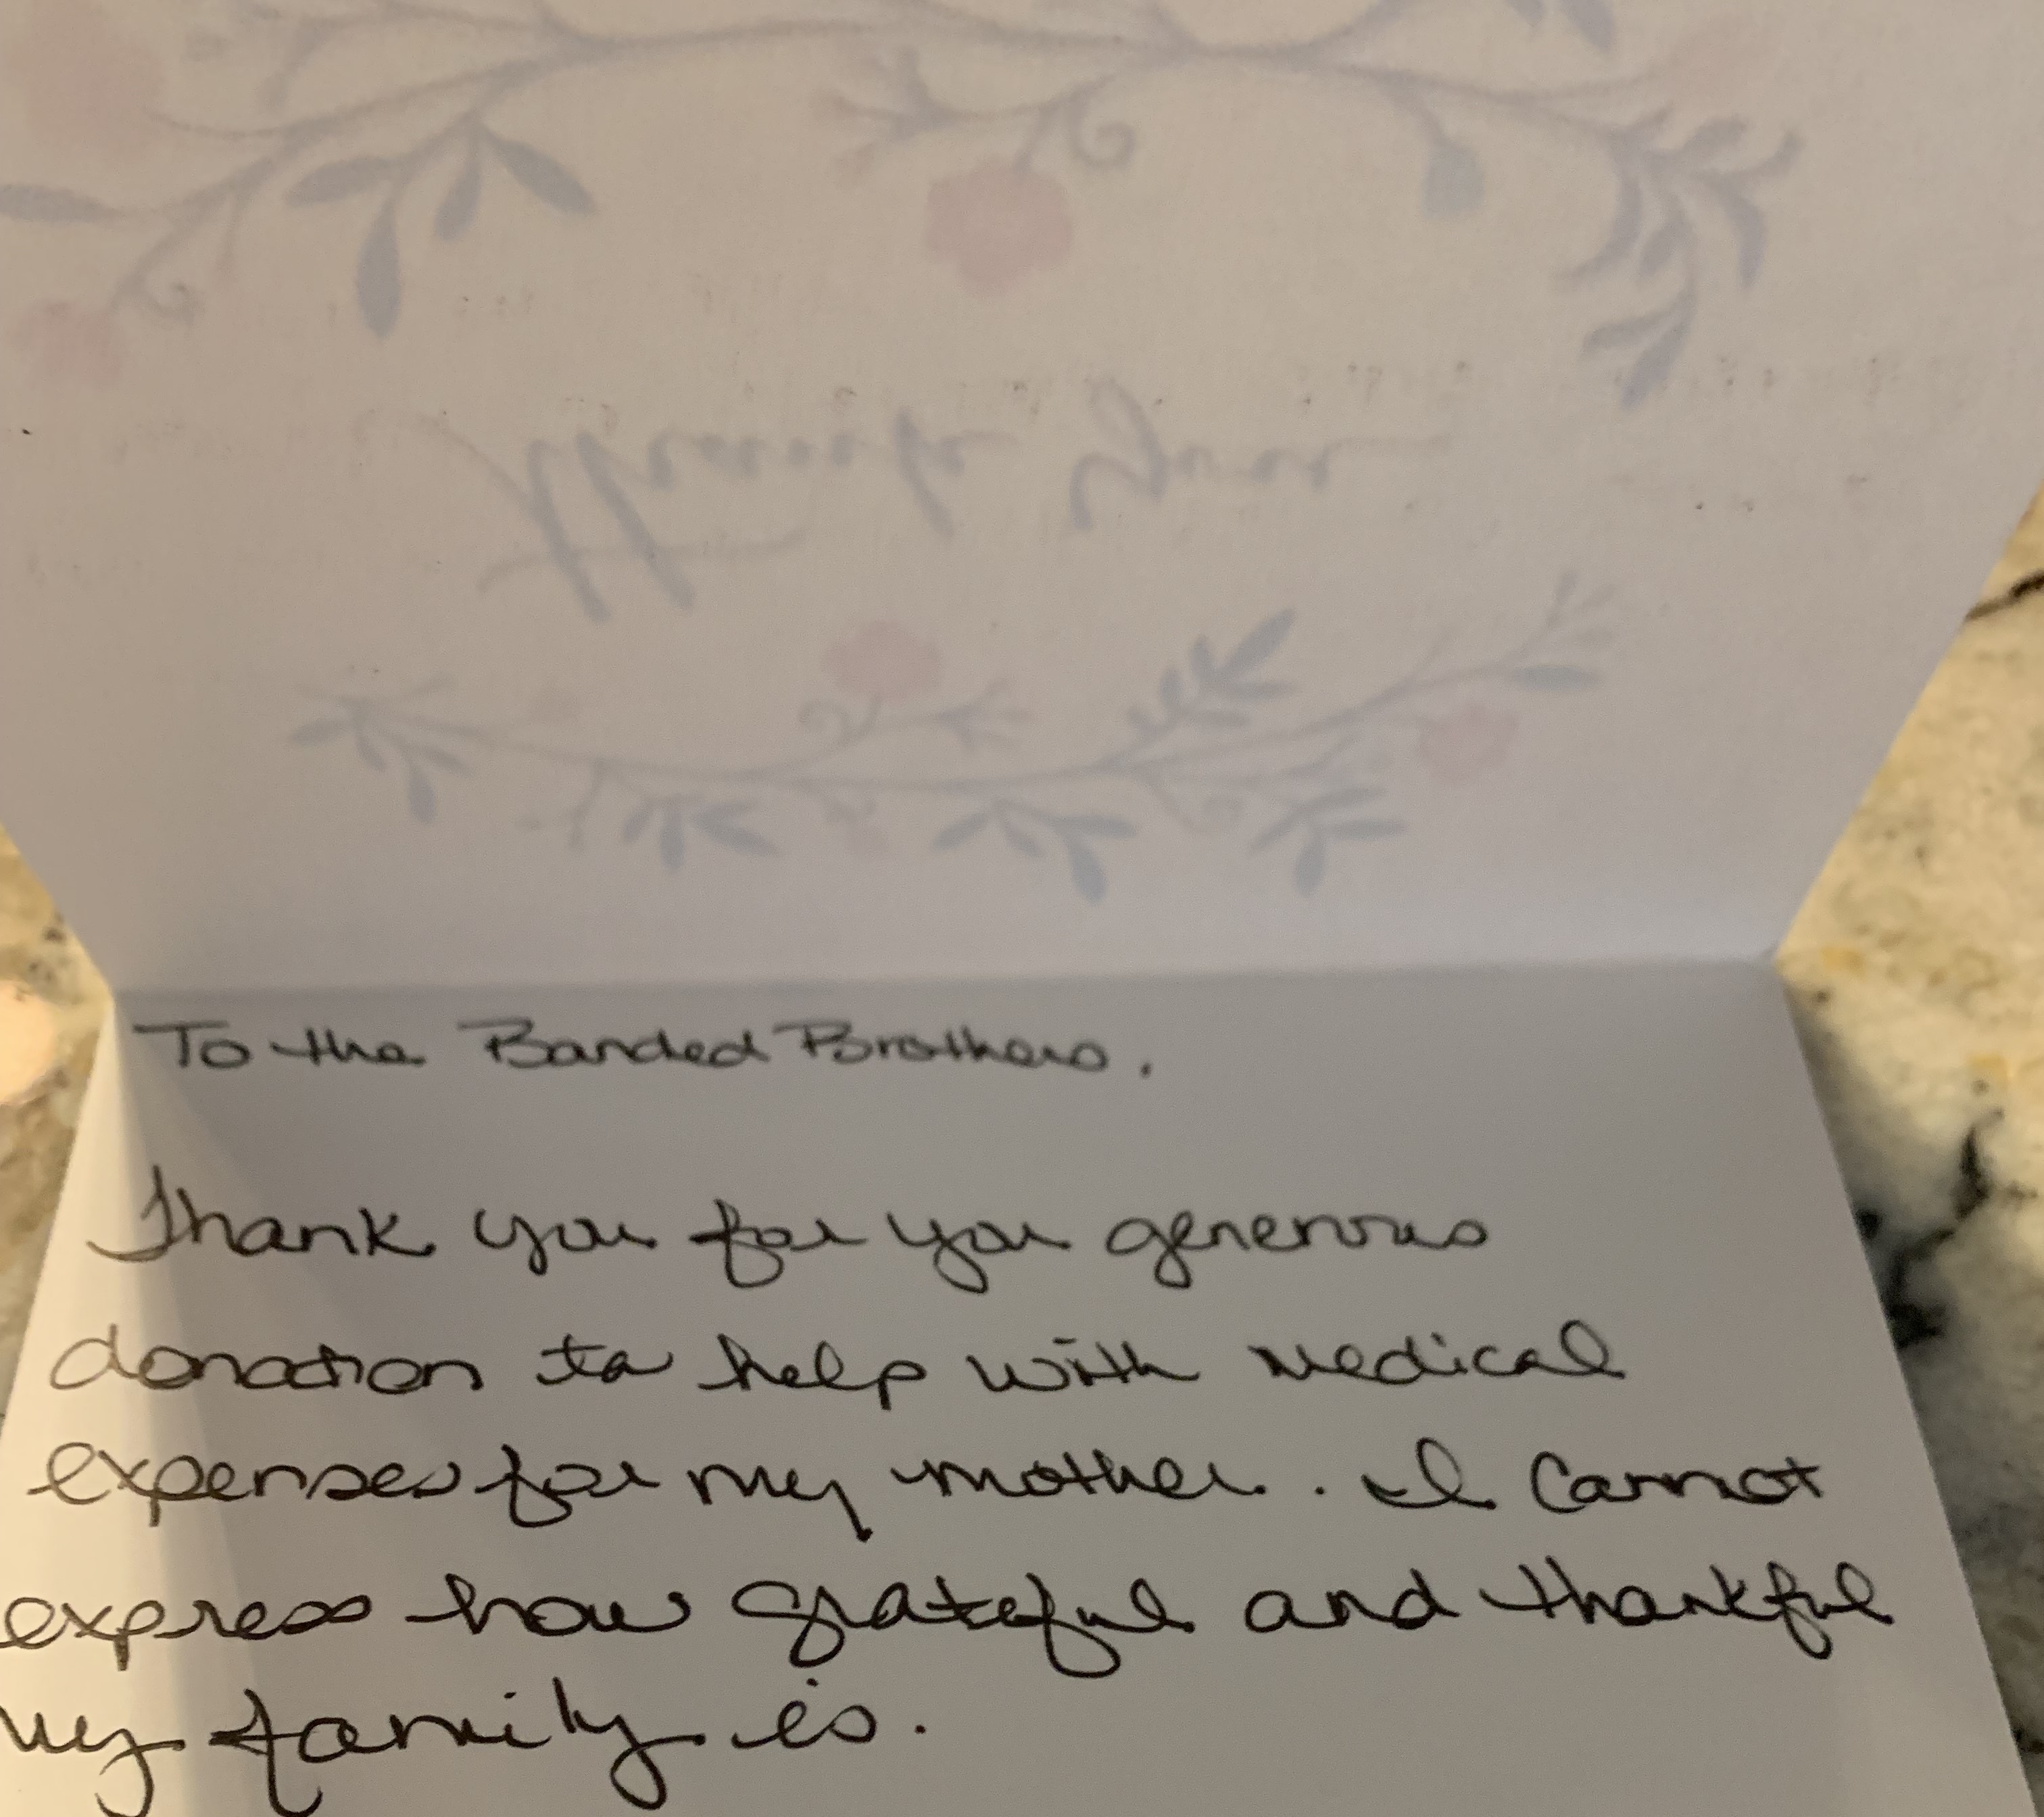 Thank you
To the Banded Brothers.
Thank you for you generous
donation to help with medical
expenses for my mother. I cannot
express how grateful and thankful
my family is.